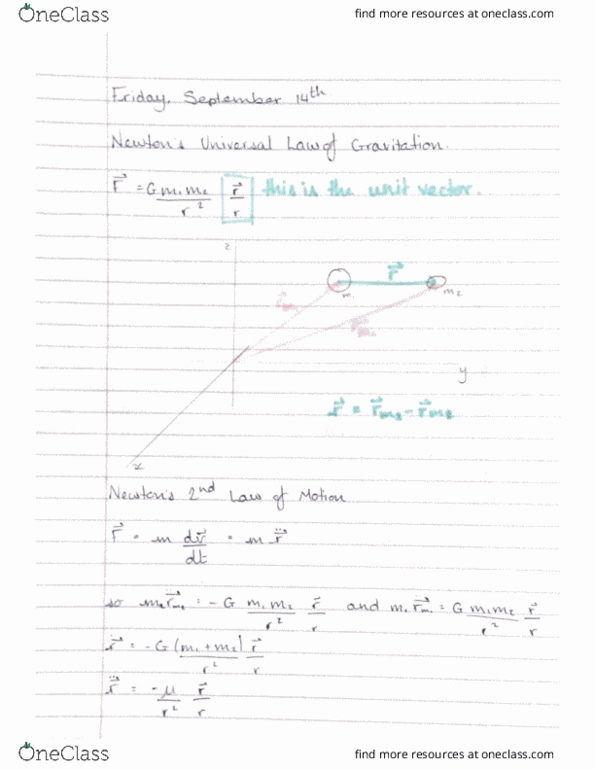 OneClass find more resources at oneclass.com
Friday, September 14th
Newton's Universal Law of Gravitation.
F⃗ = G m₁m₂/r² r⃗/r this is the unit vector.
z
r⃗
m₁ m₂
y
r⃗ = r⃗m₂ - r⃗m₂
x
Newton's 2nd Law of Motion
F⃗ = m dv⃗/dt = m r̈⃗
so m₂r̈⃗m₂ = -G m₁m₂/r² r⃗/r and m₁ r̈⃗m₁ = G m₁m₂/r² r⃗/r
r̈⃗ = -G (m₁+m₂)/r² r⃗/r
r̈⃗ = -μ/r² r⃗/r
OneClass find more resources at oneclass.com